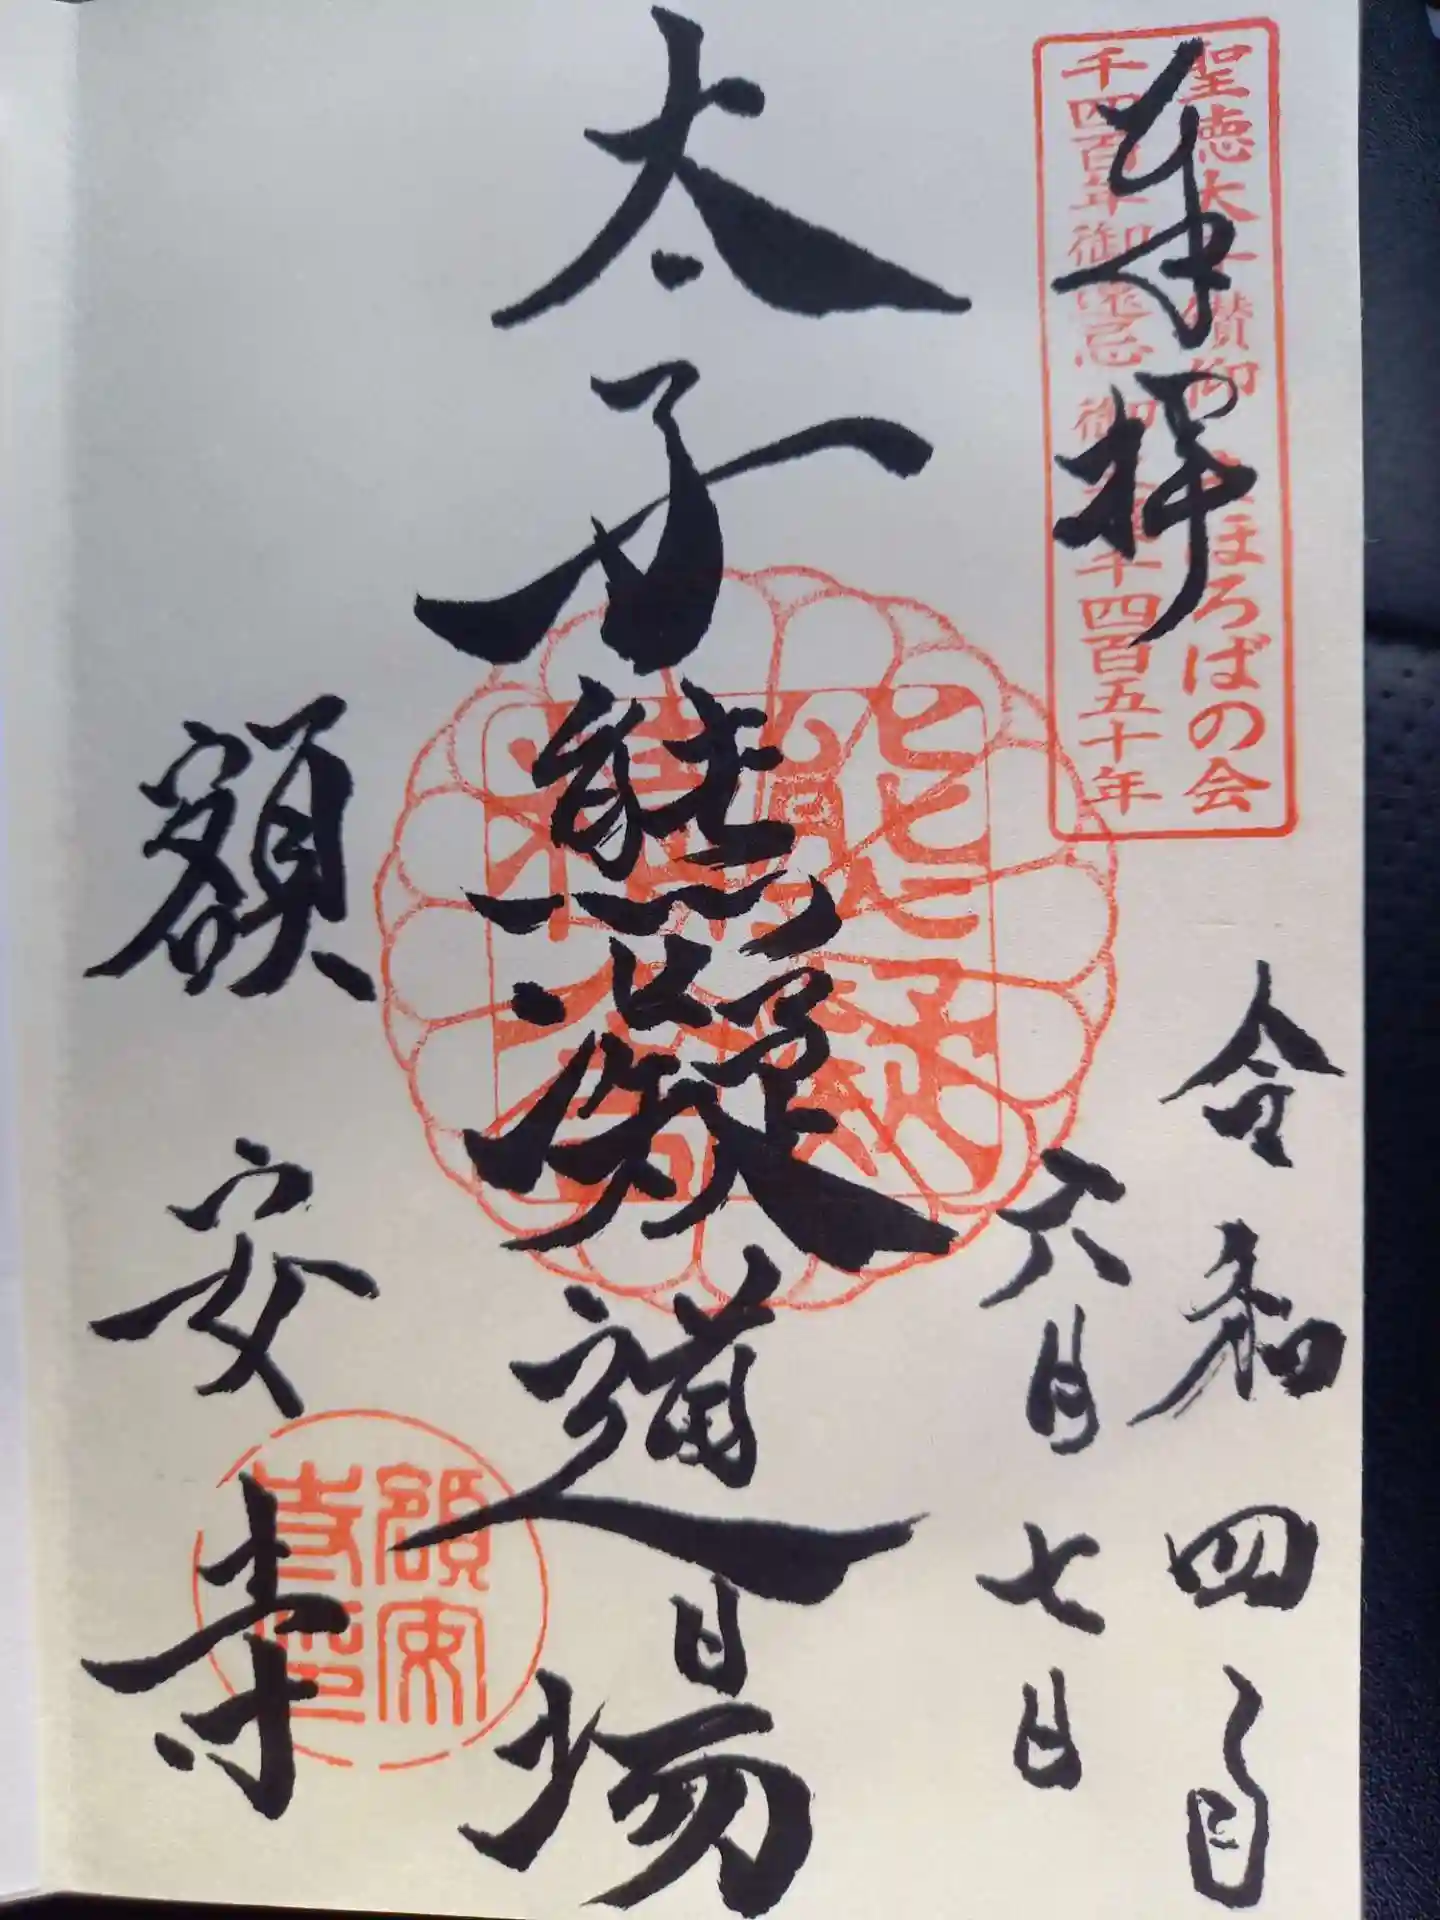 奉拝
聖徳太子讃仰まほろばの会
千四百年御遠忌 御 千四百五十年
令和四年
六月七日
太子熊凝道場
額安寺
額安
寺印